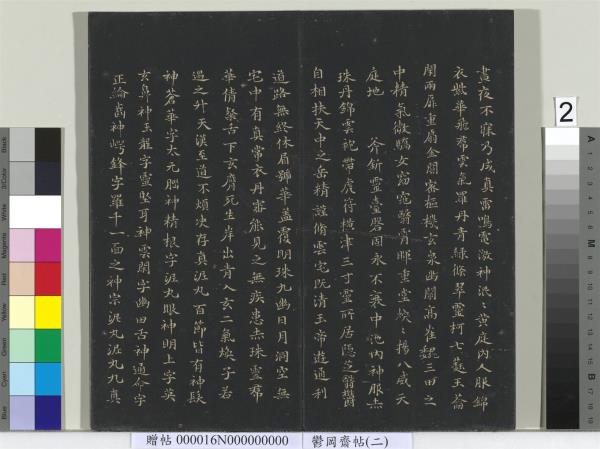 晝夜不寐乃成真雷鳴電激神泯〻黃庭內人服錦
衣紫華飛帬雲氣羅丹青綠條翠靈柯七蕤玉籥
閉兩扉重扇金關密樞機玄泉幽闕高崔巍三田之
中精氣微嬌女窈窕翳霄暉重堂煥〻揚八威天
庭地　斧斤靈臺盤固永不衰中池內神服赤
珠丹錦雲袍帶虎符橫津三寸靈所居隱芝翳鬱
自相扶天中之岳精謹脩雲宅既清玉帝遊通利
道路無終休眉號華蓋覆明珠九幽日月洞空無
宅中有真常衣丹審能見之無疾患赤珠靈帬
華倩粲舌下玄膺死生岸出青入玄二氣煥子若
遇之升天漢至道不煩決存真泥丸百節皆有神髮
神蒼華字太元腦神精根字泥丸眼神明上字英
玄鼻神玉壟字靈堅耳神雲閑字幽田舌神通命字
正綸齒神崿鋒字羅千一面之神宗泥丸泥丸九真
贈帖 000016N000000000 鬱岡齋帖(二)
2
Black
3/Color
White
Magenta
Red
Yellow
Green
Cyan
Blue
A 1 2 3 4 5 6 M 8 9 10 11 12 13 14 15 B 17 18 19